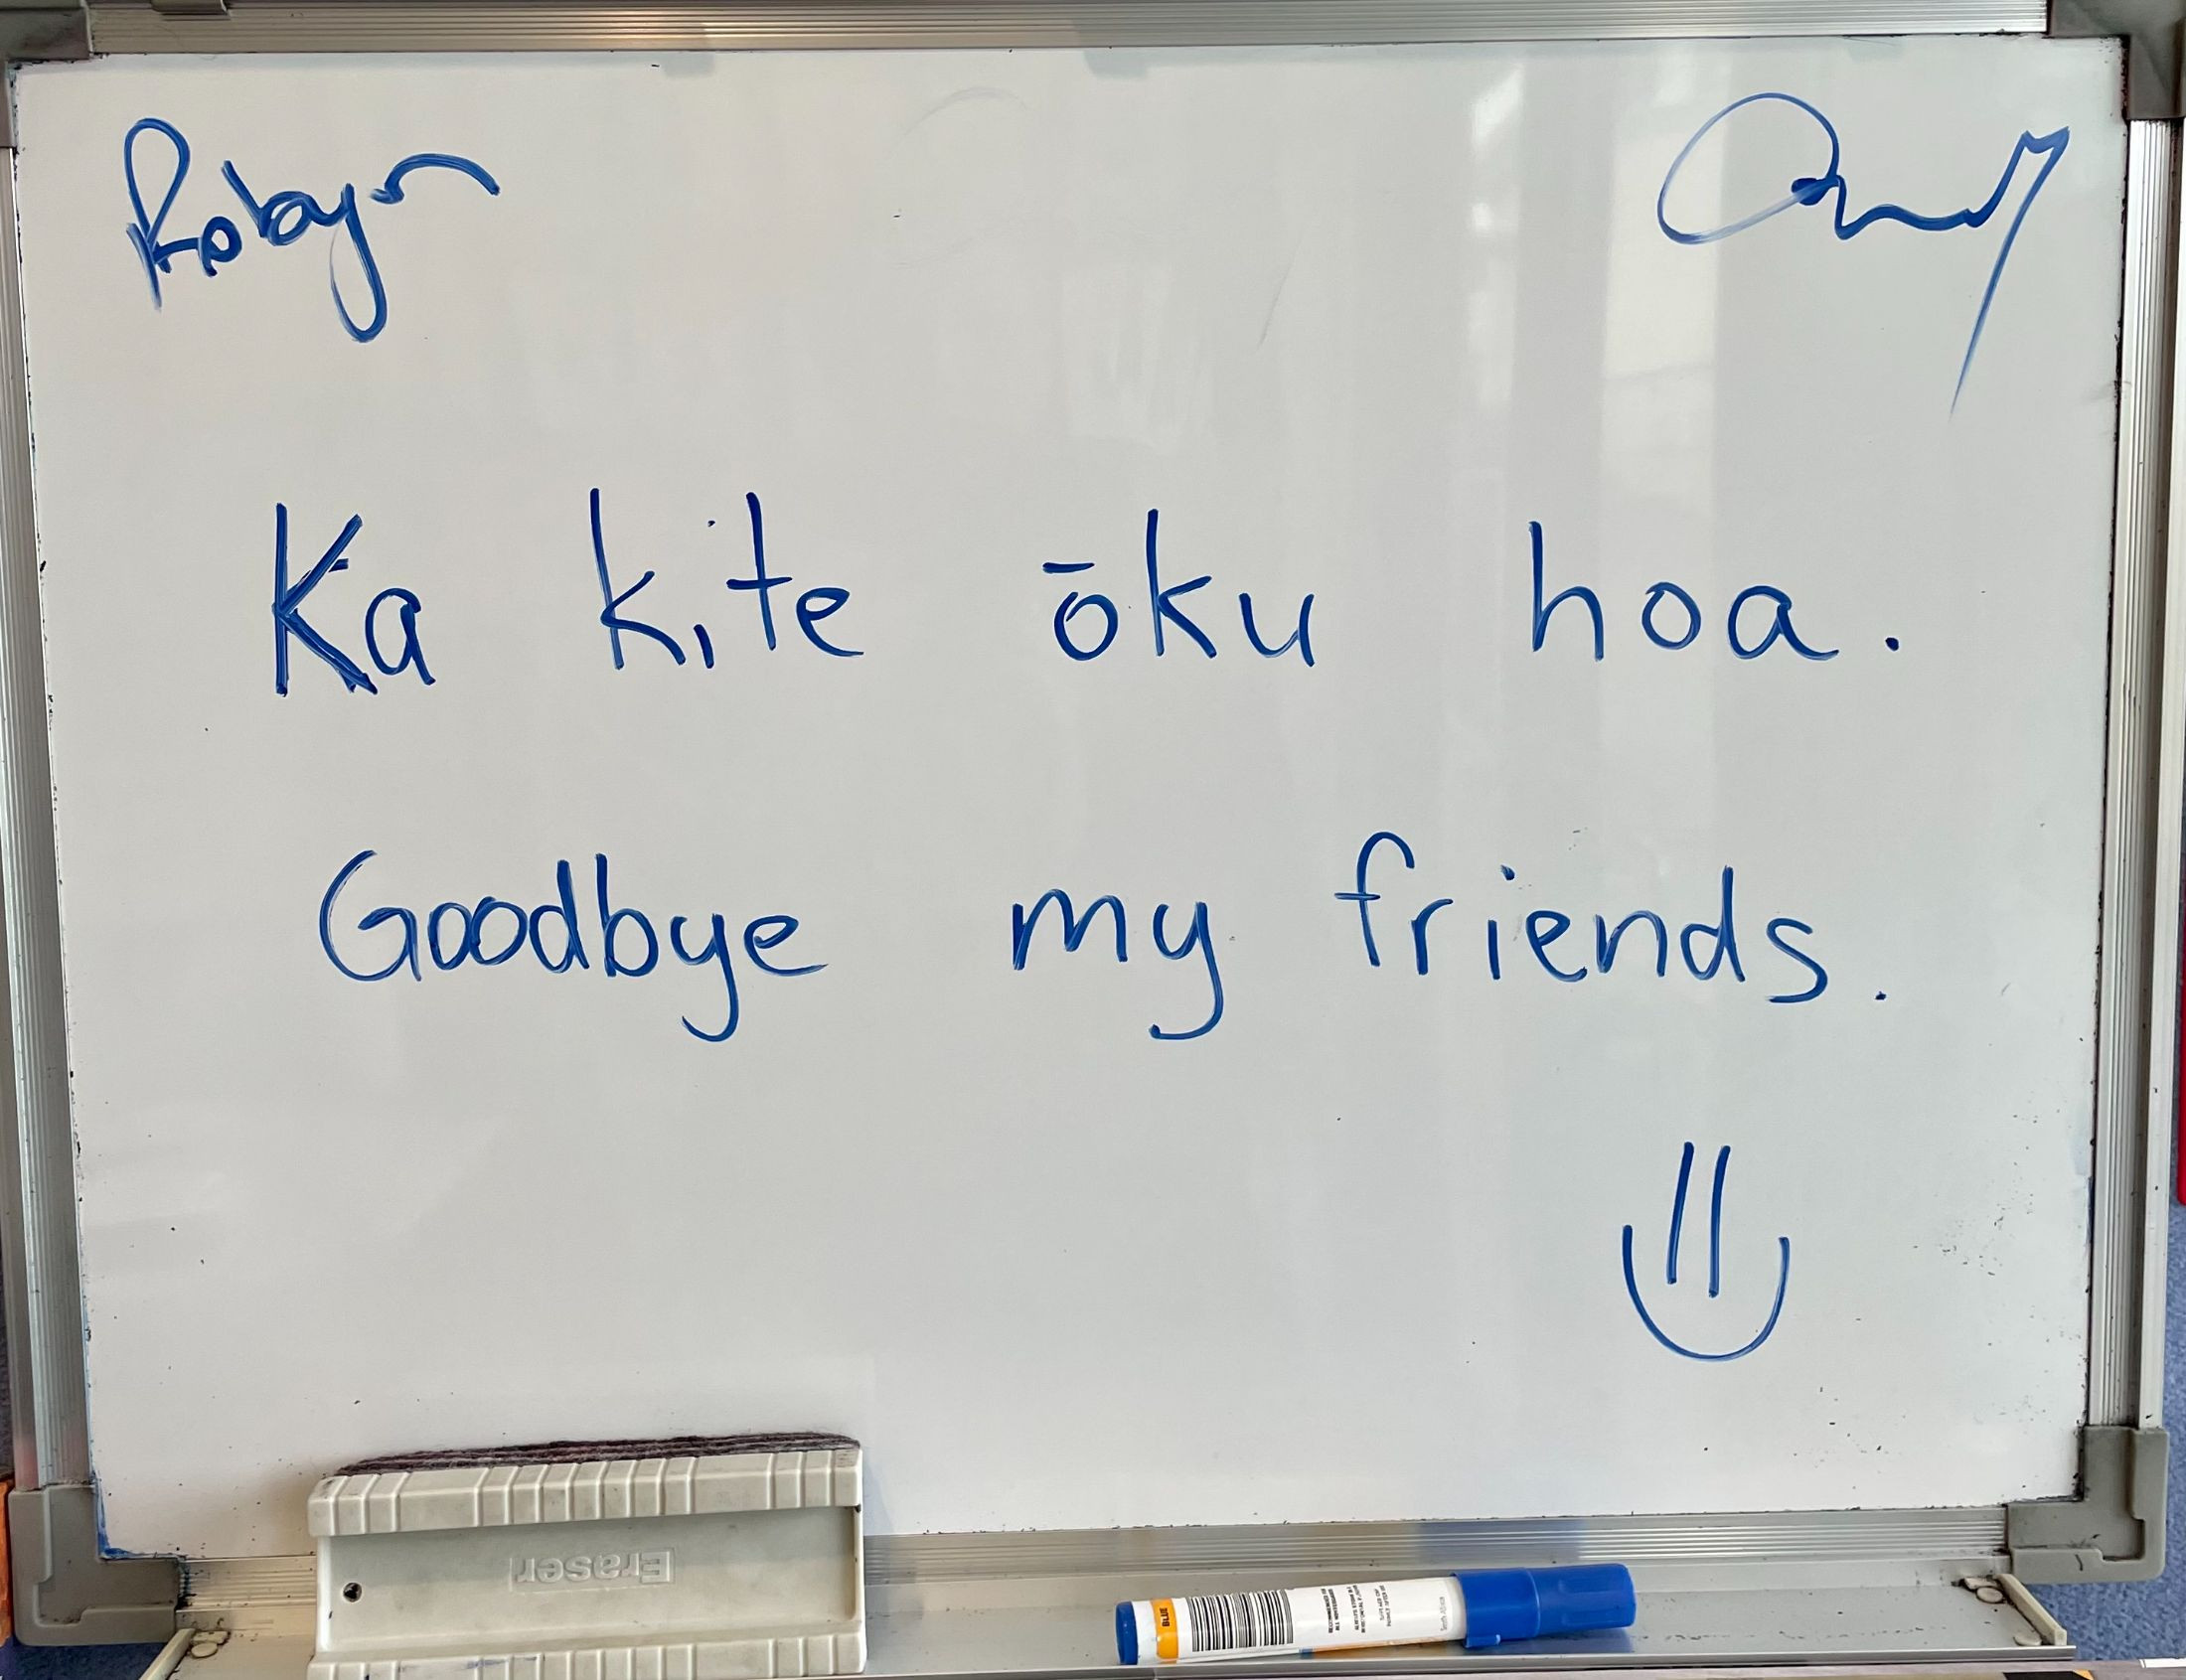 Robyn
Andy
Ka kite ōku hoa.
Goodbye my friends.
Eraser
BLUE